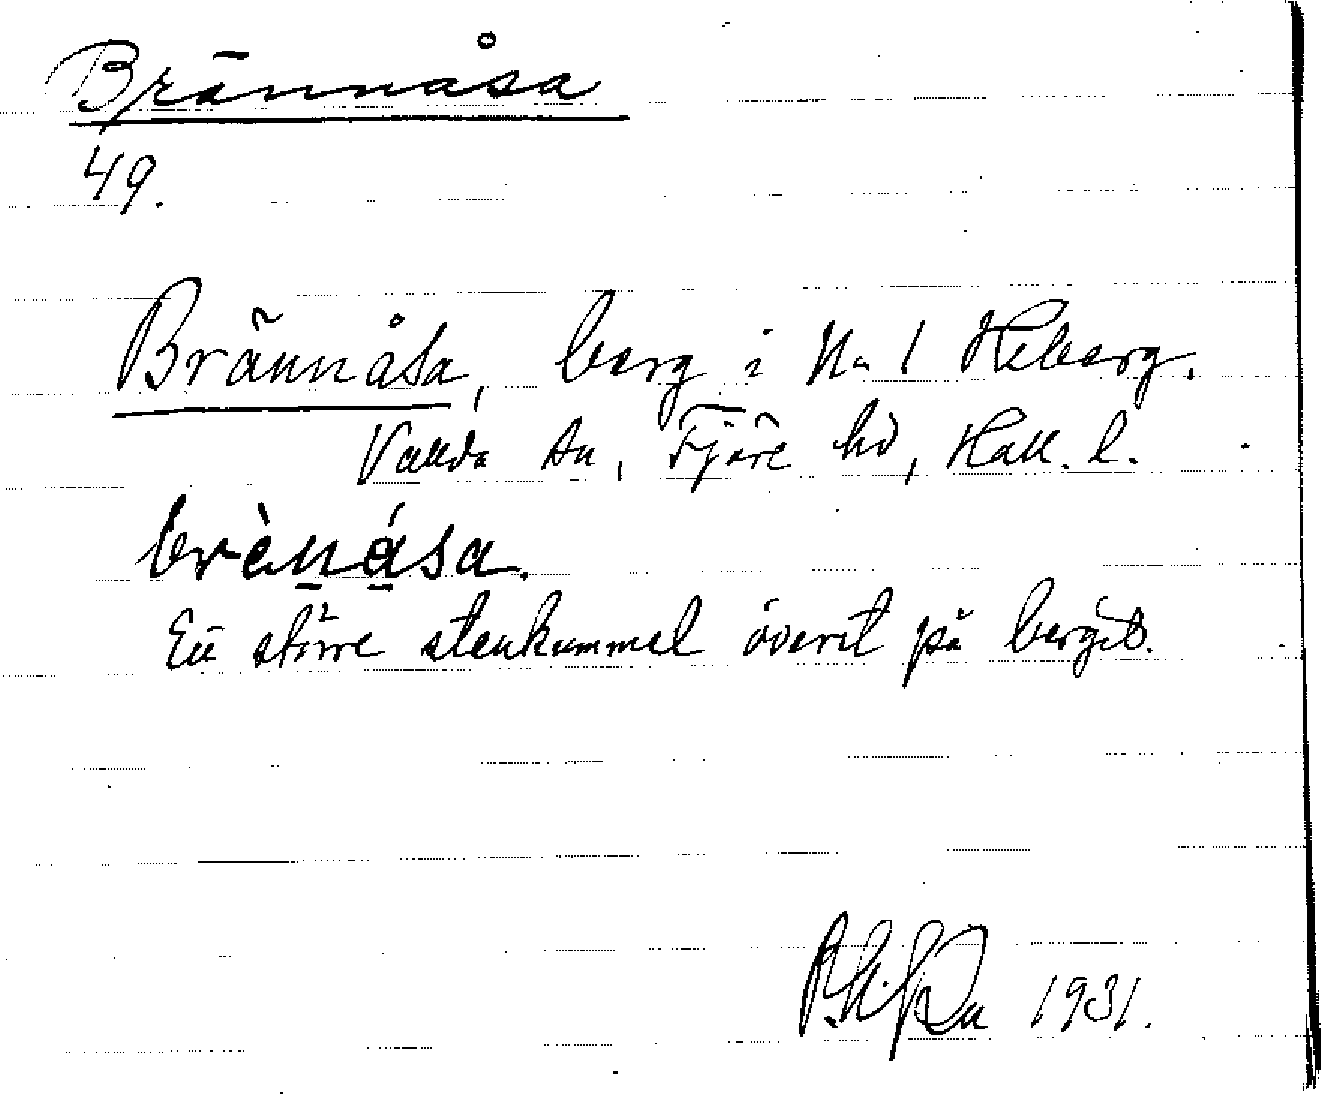 Brännåsa
49.
Brännåsa, berg i Nr 1 Heberg.
Vallda sn, Fjäre hd, Hall. l.
brènása.
Ett större stenkummel överst på berget.
1931.